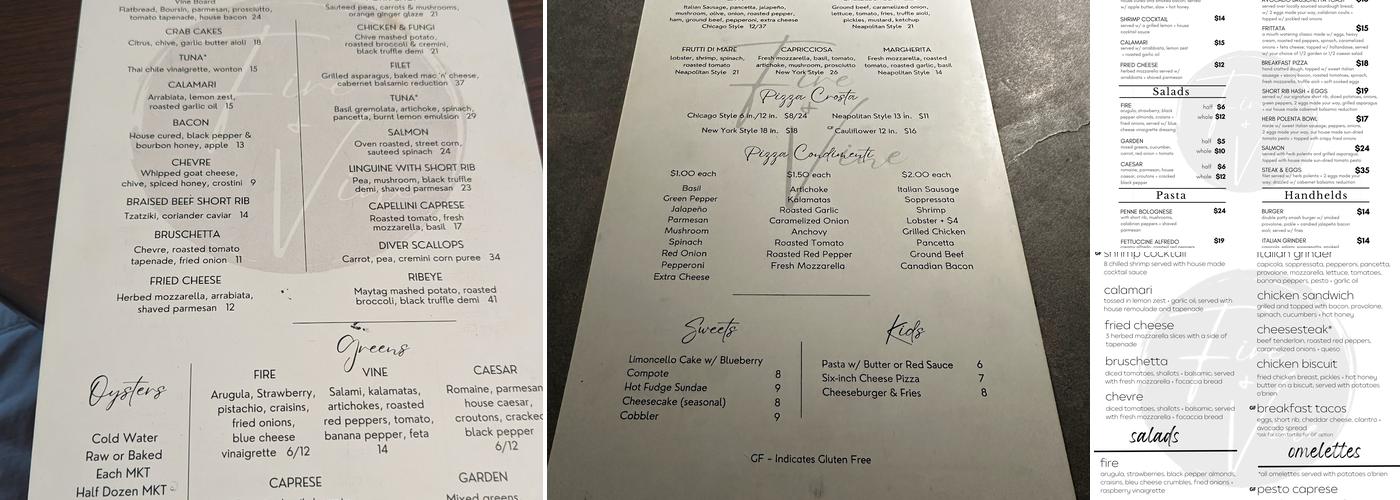 Vine Board
Flatbread, Boursin, parmesan, prosciutto,
tomato tapenade, house bacon 24
CRAB CAKES
Citrus, chive, garlic butter aioli 18
TUNA*
Thai chile vinaigrette, wonton 15
CALAMARI
Arrabiata, lemon zest,
roasted garlic oil 15
BACON
House cured, black pepper &
bourbon honey, apple 13
CHEVRE
Whipped goat cheese,
chive, spiced honey, crostini 9
BRAISED BEEF SHORT RIB
Tzatziki, coriander caviar 14
BRUSCHETTA
Chevre, roasted tomato
tapenade, fried onion 11
FRIED CHEESE
Herbed mozzarella, arrabiata,
shaved parmesan 12
Sauteed peas, carrots & mushrooms,
orange ginger glaze 21
CHICKEN & FUNGI
Chive mashed potato,
roasted broccoli & cremini,
black truffle demi 21
FILET
Grilled asparagus, baked mac 'n' cheese,
cabernet balsamic reduction 37
TUNA*
Basil gremolata, artichoke, spinach,
pancetta, burnt lemon emulsion 29
SALMON
Oven roasted, street corn,
sauteed spinach 24
LINGUINE WITH SHORT RIB
Pea, mushroom, black truffle
demi, shaved parmesan 23
CAPELLINI CAPRESE
Roasted tomato, fresh
mozzarella, basil 17
DIVER SCALLOPS
Carrot, pea, cremini corn puree 34
RIBEYE
Maytag mashed potato, roasted
broccoli, black truffle demi 41
Greens
Oysters
Cold Water
Raw or Baked
Each MKT
Half Dozen MKT
FIRE
Arugula, Strawberry,
pistachio, craisins,
fried onions,
blue cheese
vinaigrette 6/12
CAPRESE
VINE
Salami, kalamatas,
artichokes, roasted
red peppers, tomato,
banana pepper, feta
14
CAESAR
Romaine, parmesan
house caesar,
croutons, cracked
black pepper
6/12
GARDEN
Mixed greens
Italian Sausage, pancetta, jalapeño,
mushroom
ham, ground beef, pepperoni, extra cheese
Chicago Style 12/37
Ground beef, caramelized onion,
lettuce, tomato, fries, truffle aioli,
pickles, mustard, ketchup
Neapolitan Style 21
FRUTTI DI MARE
lobster, shrimp, spinach,
roasted tomato
Neapolitan Style 21
CAPRICCIOSA
Fresh mozzarella, basil, tomato,
artichoke, mushroom, prosciutto
New York Style 26
MARGHERITA
Fresh mozzarella, roasted
tomato, roasted garlic, basil
Neapolitan Style 14
Fire & Vine
Pizza Crosta
Chicago Style 6 in./12 in. $8/24
Neapolitan Style 13 in. $11
New York Style 18 In. $18
GF Cauliflower 12 in. $16
Pizza Condimenti
$1.00 each
Basil
Green Pepper
Jalapeño
Parmesan
Mushroom
Spinach
Red Onion
Pepperoni
Extra Cheese
$1.50 each
Artichoke
Kalamatas
Roasted Garlic
Caramelized Onion
Anchovy
Roasted Tomato
Roasted Red Pepper
Fresh Mozzarella
$2.00 each
Italian Sausage
Soppressata
Shrimp
Lobster + $4
Grilled Chicken
Pancetta
Ground Beef
Canadian Bacon
Sweets
Limoncello Cake w/ Blueberry
Compote 8
Hot Fudge Sundae 9
Cheesecake (seasonal) 8
Cobbler 9
Kids
Pasta w/ Butter or Red Sauce 6
Six-inch Cheese Pizza 7
Cheeseburger & Fries 8
GF - Indicates Gluten Free
SHRIMP COCKTAIL $14
served w/ a grilled lemon + house
cocktail sauce
CALAMARI $15
served w/ arrabbiata, lemon zest
+ roasted garlic oil
FRIED CHEESE $12
herbed mozzarella served w/
arrabbiata + shaved parmesan
Salads
FIRE half $6
whole $12
arugula, strawberry, black
pepper almonds, craisins +
fried onions, served w/ blue
cheese vinaigrette dressing
GARDEN half $5
whole $10
mixed greens, cucumber,
carrot, red onion + tomato
CAESAR half $6
whole $12
romaine, parmesan, house
caesar, croutons + cracked
black pepper
Pasta
PENNE BOLOGNESE $24
with short rib, mushrooms,
calabrian chiles + shaved
parmesan
FETTUCCINE ALFREDO $19
FRITTATA $15
BREAKFAST PIZZA $18
SHORT RIB HASH + EGGS $19
HERB POLENTA BOWL $17
SALMON $24
served with herb polenta and grilled asparagus,
topped with house made sun-dried tomato pesto
STEAK & EGGS $35
Handhelds
BURGER $14
double patty smash burger w/ smoked
provolone, pickle + candied jalapeño bacon
aioli; served w/ fries
ITALIAN GRINDER $14
GF shrimp cocktail
8 chilled shrimp served with house made
cocktail sauce
calamari
tossed in lemon zest + garlic oil, served with
house remoulade and tapenade
fried cheese
3 herbed mozzarella slices with a side of
tapenade
bruschetta
diced tomatoes, shallots + balsamic, served
with fresh mozzarella + focaccia bread
chevre
diced tomatoes, shallots + balsamic, served
with fresh mozzarella + focaccia bread
salads
fire
arugula, strawberries, black pepper almonds,
craisins, bleu cheese crumbles, fried onions +
raspberry vinaigrette
italian grinder
capicola, soppressata, pepperoni, pancetta,
provolone, mozzarella, lettuce, tomatoes,
banana peppers, pesto + garlic oil
chicken sandwich
grilled and topped with bacon, provolone,
spinach, cucumbers + hot honey
cheesesteak*
beef tenderloin, roasted red peppers,
caramelized onions + queso
chicken biscuit
fried chicken breast, pickles + hot honey
butter on a biscuit, served with potatoes
o'brien
GF breakfast tacos
eggs, short rib, cheddar cheese, cilantro +
avocado spread
*ask for corn tortilla for GF option
omelettes
*all omelettes served with potatoes o'brien
GF pesto caprese